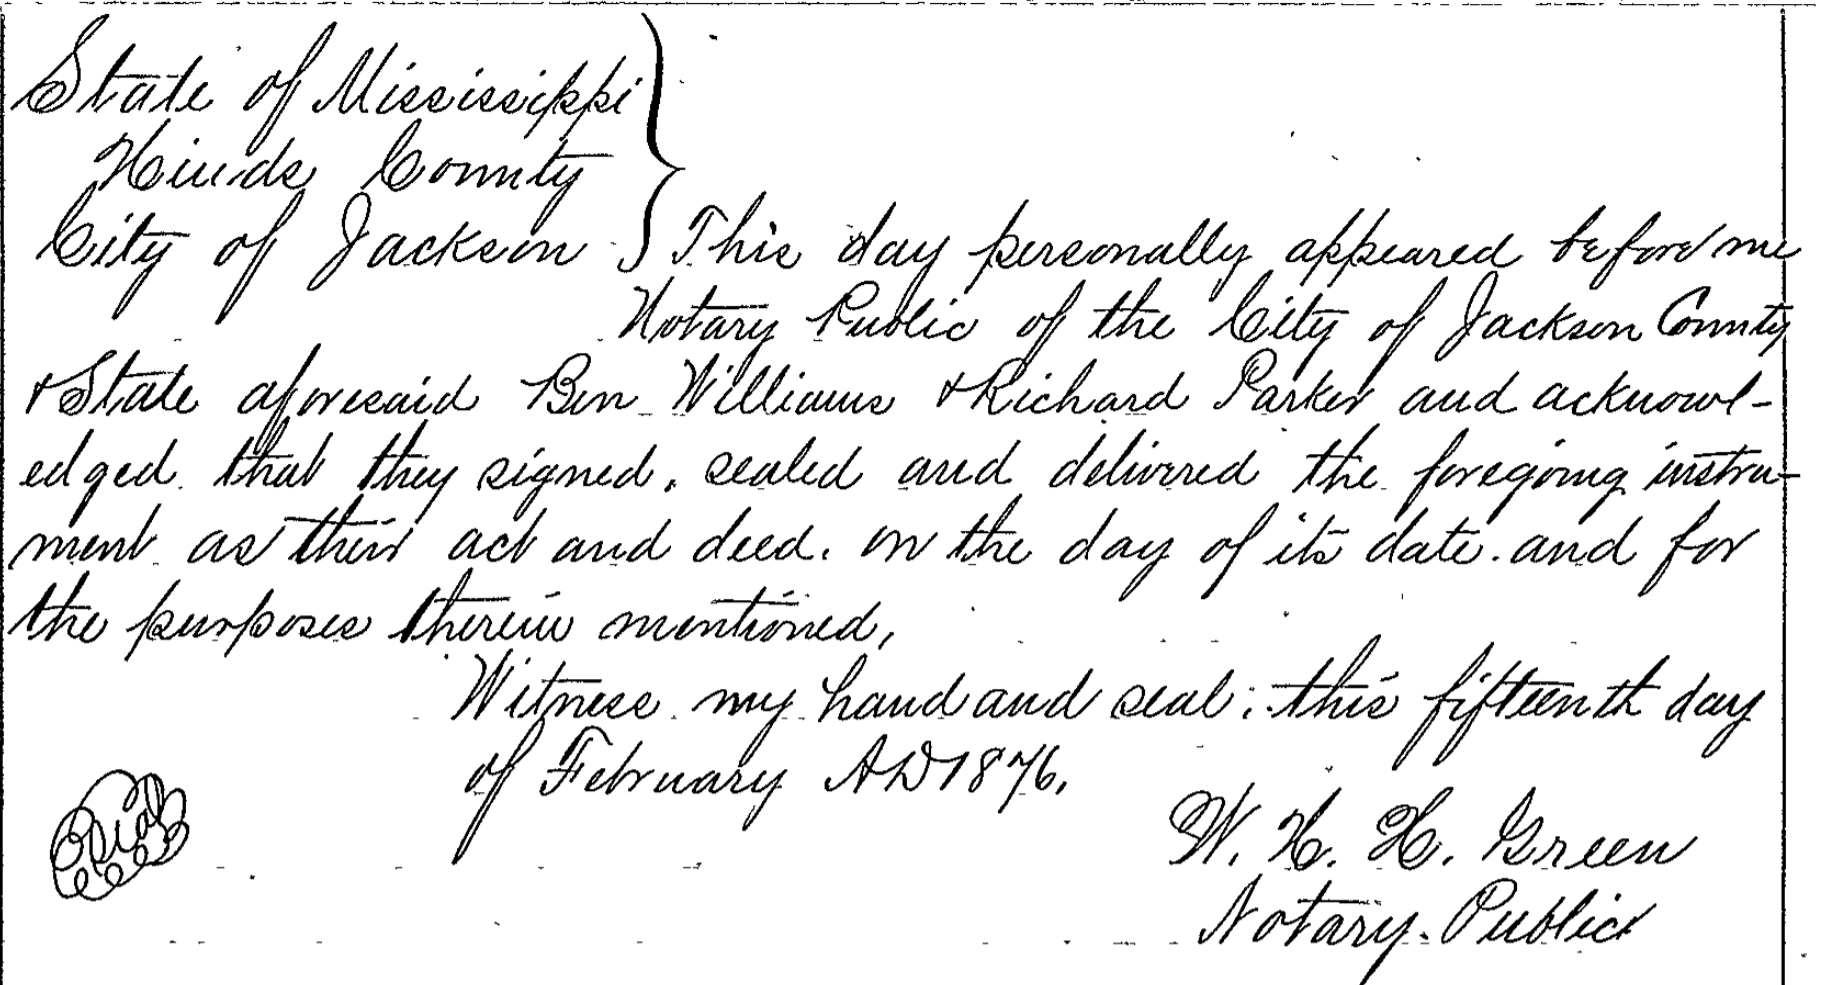 State of Mississippi
Hinds County
City of Jackson } This day personally appeared before me
Notary Public of the City of Jackson County
& State aforesaid Ben Williams & Richard Parker and acknowl-
edged that they signed, sealed and delivered the foregoing instru-
ment as their act and deed. on the day of its date. and for
the purposes therein mentioned,
Witness my hand and seal; this fifteenth day
of February AD 1876.
Seal
W. H. H. Green
Notary Public